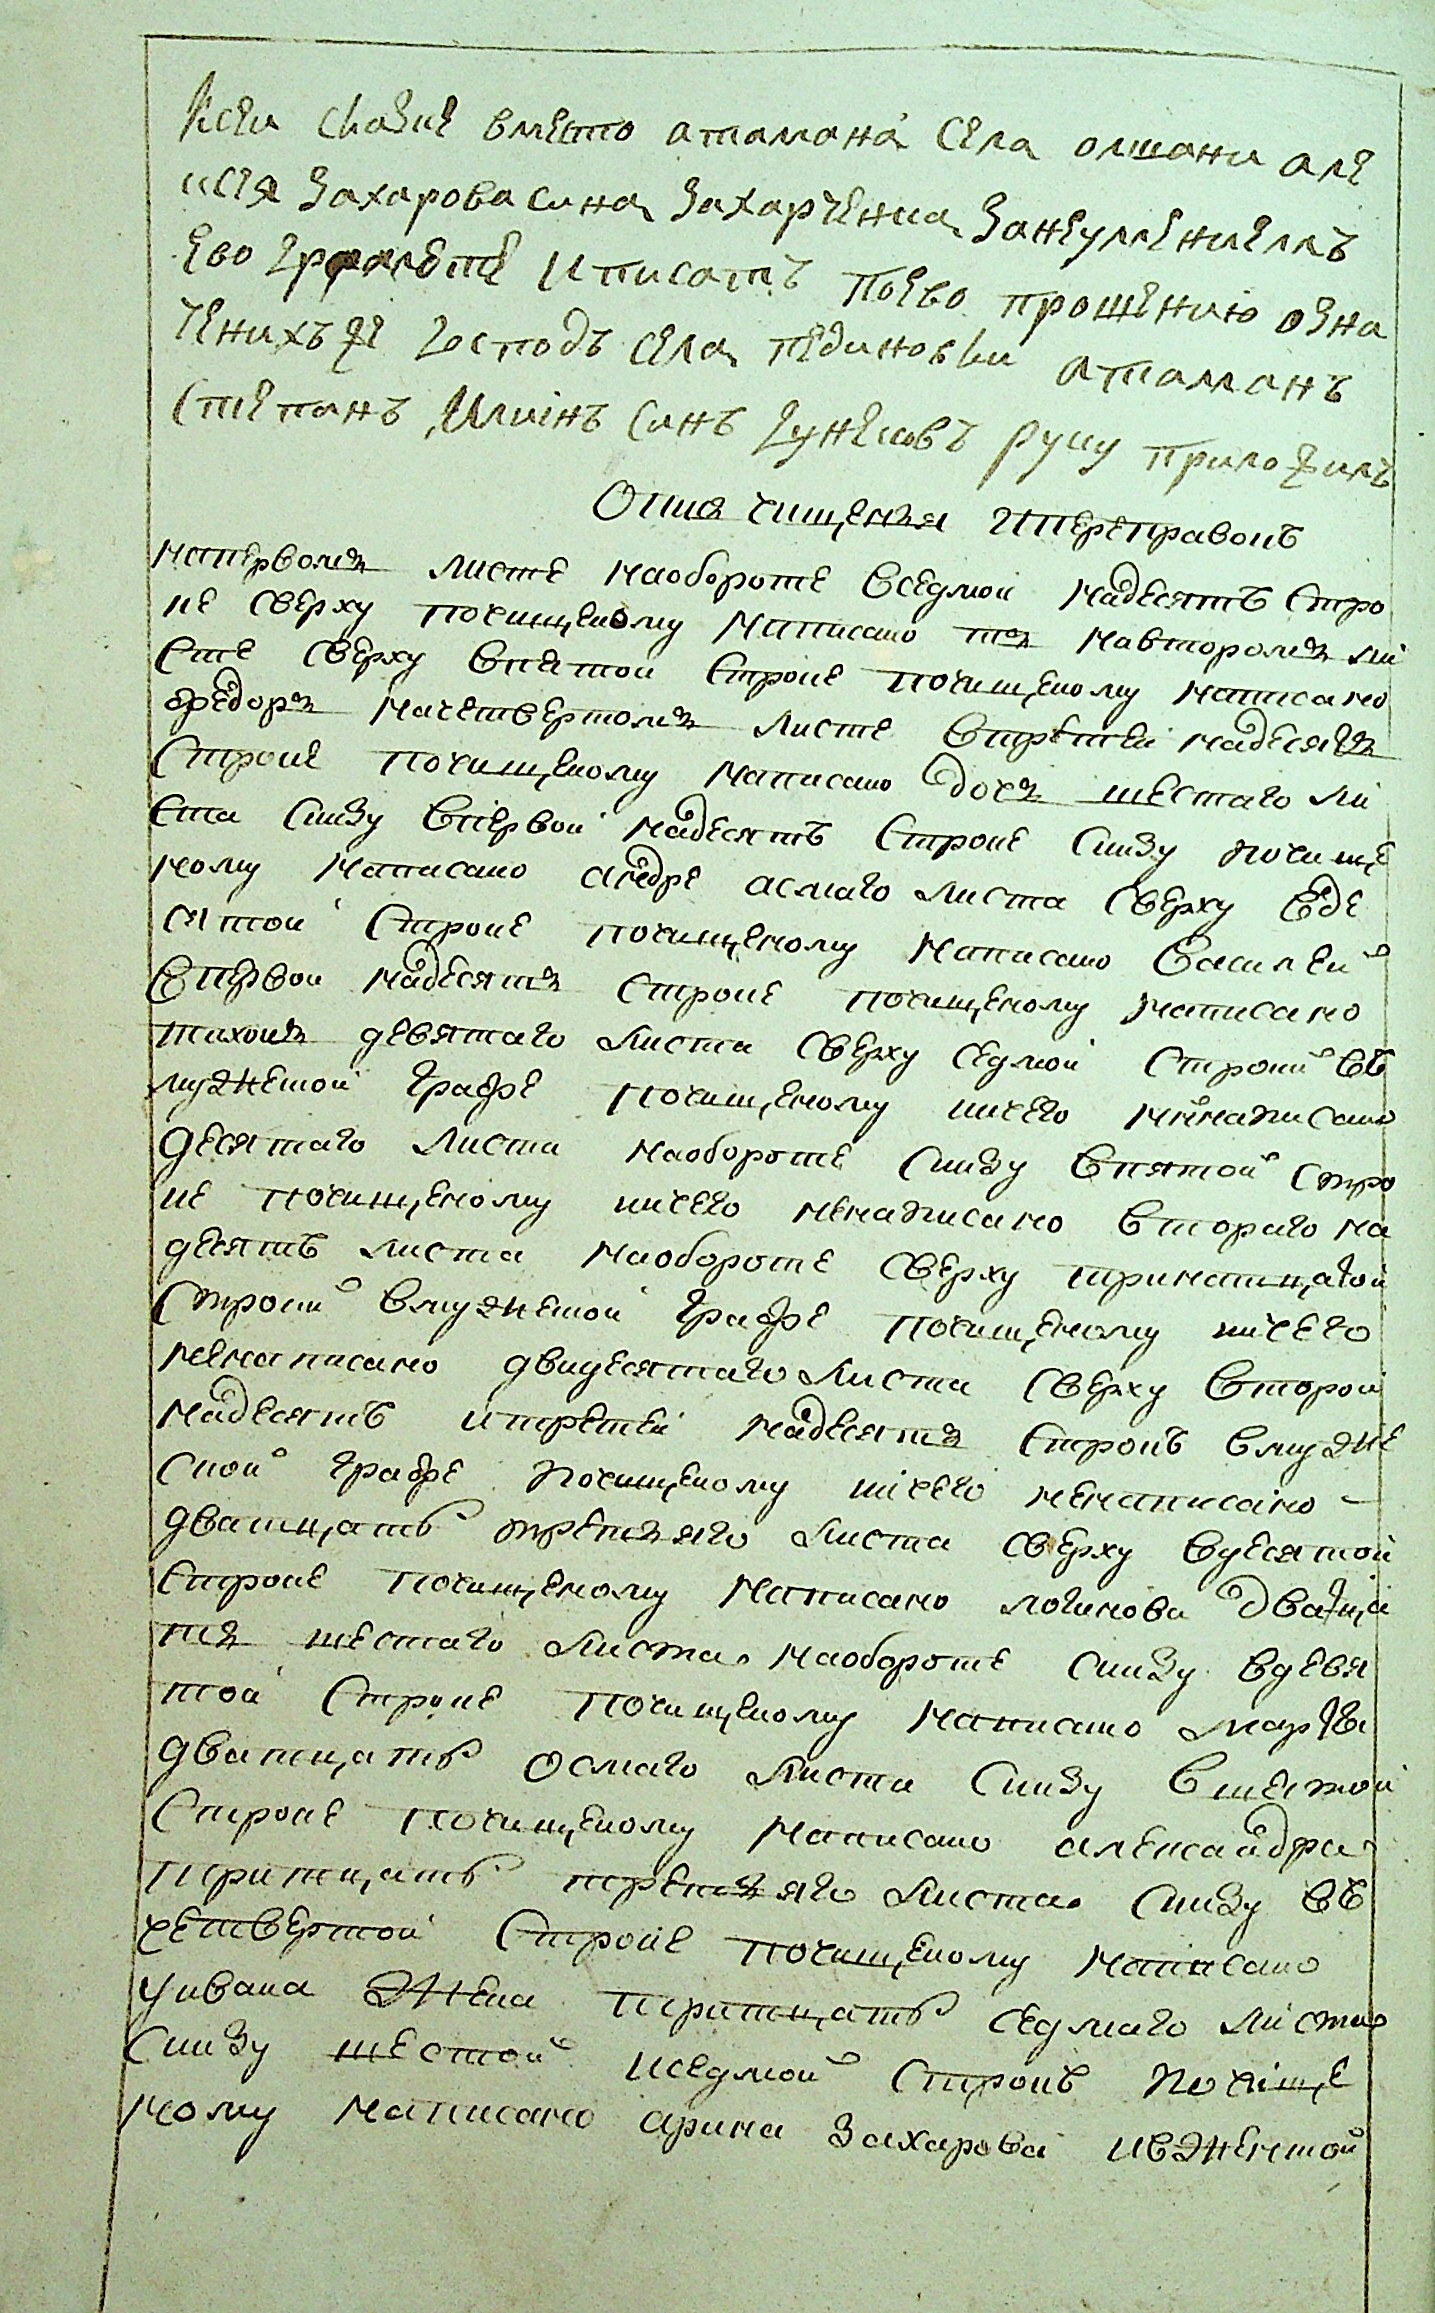 Ксеи скаские вместо атамана села олшани але
ксея Захарова сина Захарченка Занеумениемъ
ево грамоте и писатъ поево прошению озна
ченихъ же господъ села пединовки атаманъ
Степанъ Илинъ синъ Гунковъ руку приложилъ
Описъ чищения ипереправокъ
напервомъ листе наоборотѣ вседмой надесять стро
ке сверху почищеному написано тъ навторомъ ли
сте сверху впятой строке почищеному написано
ѳедоръ начетвертомъ листе втретей надесять
строке почищеному написано дочъ шестаго ли
ста снизу впервой надесять строке снизу почище
ному написано андре асмаго листа сверху вде
сятой строке почищеному написано василей
впервой надесять строке почищеному написано
тихонъ девятаго листа сверху седмой строки въ
мужеской граѳе почищеному ничего ненаписано
десятаго листа наоборотѣ снизу впятой стро
ке почищеному ничего ненаписано втораго на
десять листа наоборотѣ сверху тринатцатой
строки вмужеской граѳе почищеному ничего
ненаписано двидесятаго листа сверху второй
надесять итретей надесять строкъ вмуже
ской граѳе почищеному нічего ненаписано
дватцать третяго листа сверху вдесятой
строке почищеному написано логинова дватца
ть шестаго листа наоборотѣ снизу вдевя
той строке почищеному написано марѳа
дватцать осмаго листа снизу вшестой
строке почищеному написано александра
тритцать третяго листа снизу въ
четвертой строке почищеному написано
уивана жена тритцать седмаго листа
снизу шестой иседмой строкъ почіще
ному написано арина захарова ивженской